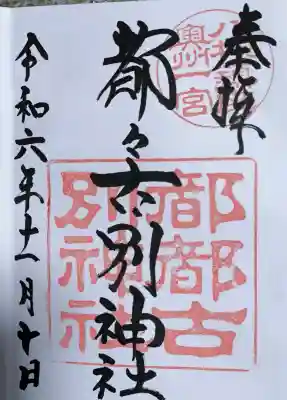 奉拝
八槻郷
奥州一宮
都々古別神社
都都古
別神社
令和六年十一月十日